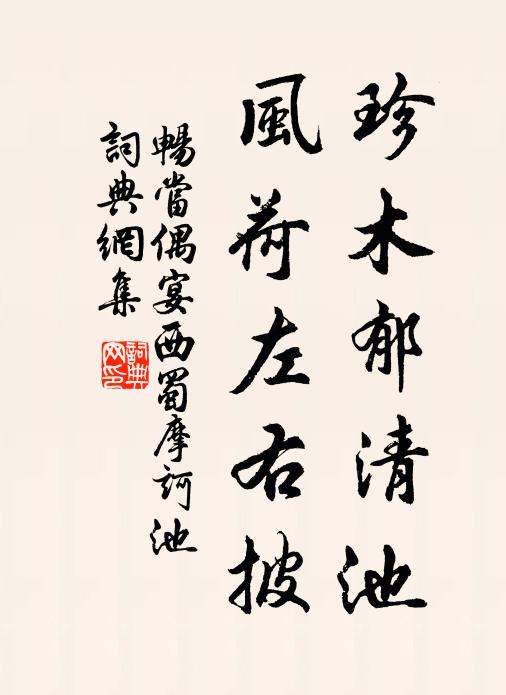 珍木郁清池
風荷左右披
暢當偶宴西蜀摩訶池
詞典網集
詞典
网印